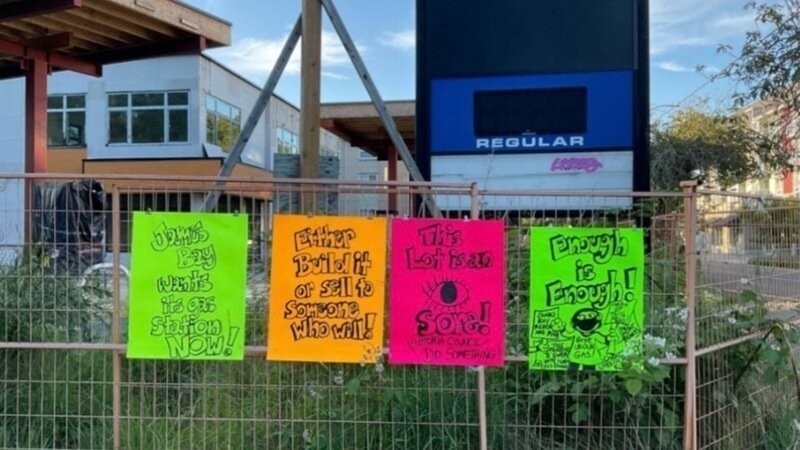 REGULAR
James
Bay
wants
its gas
station
NOW!
Either
Build it
or sell to
Someone
Who will!
This
Lot is an
Sore!
VICTORIA COUNCIL
DO SOMETHING
Enough
is
Enough!
GIVE
GAS!